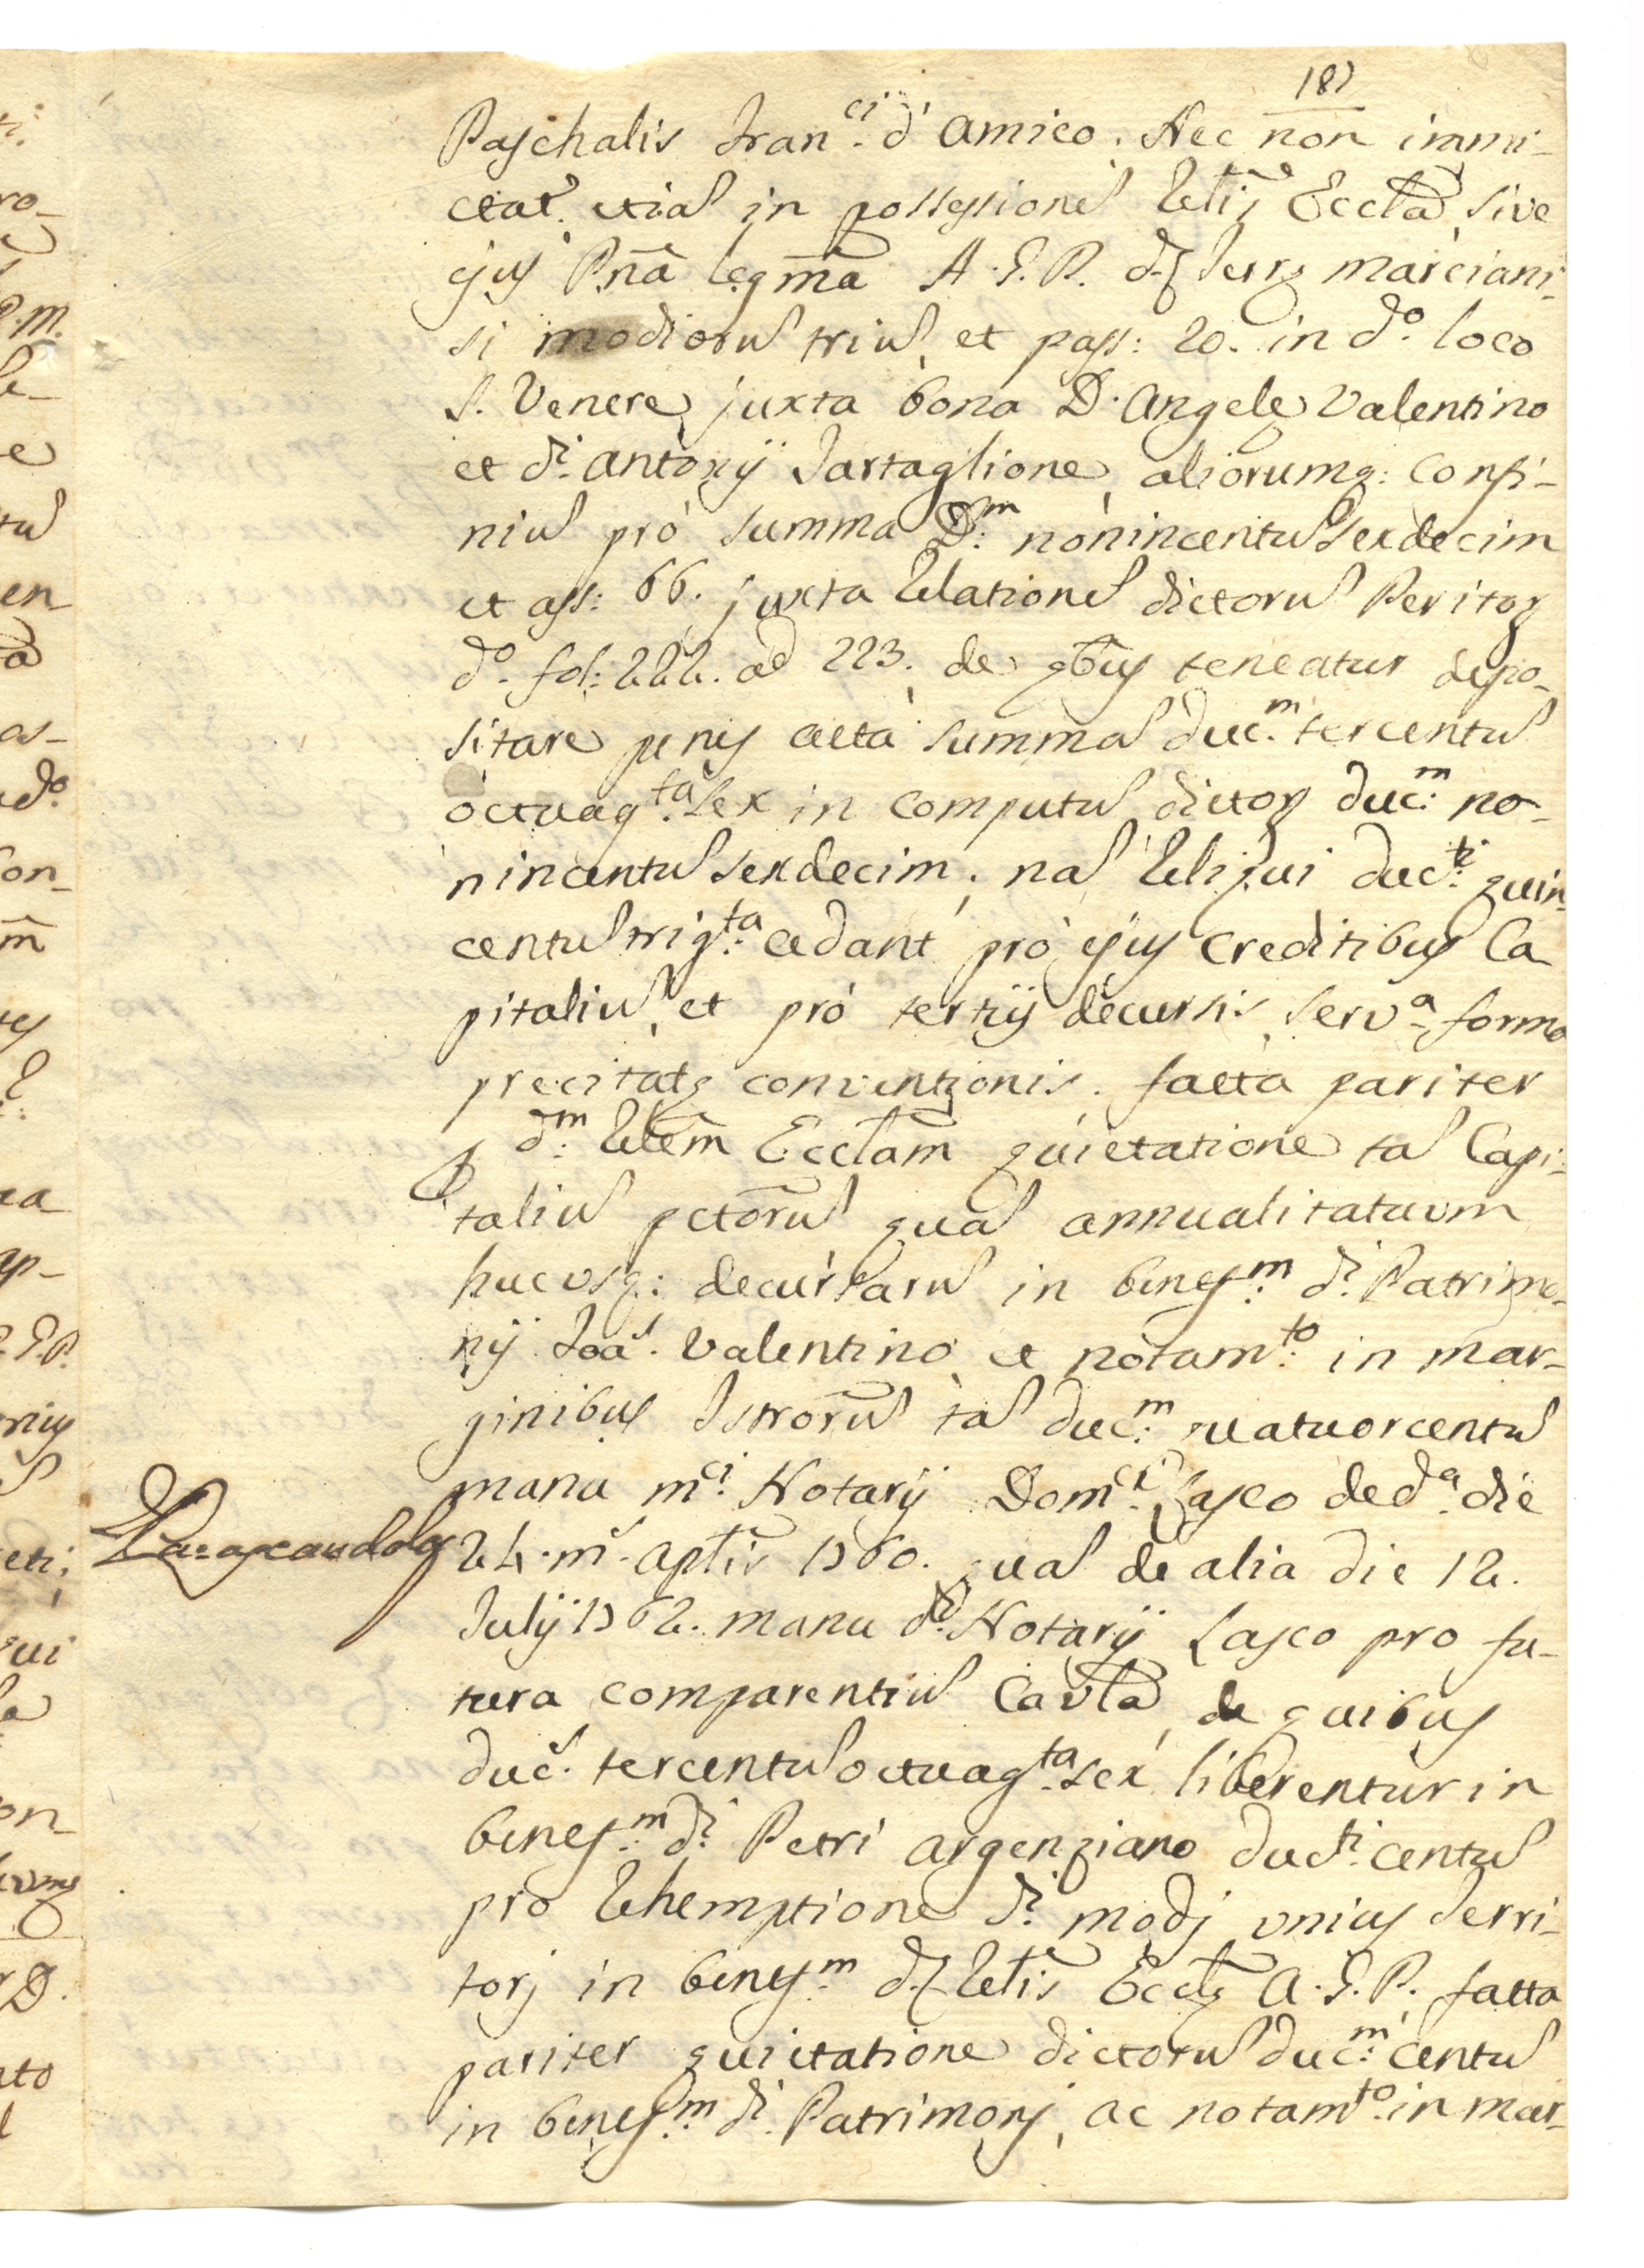 187
Paschalis Fran.ci d'Amico. Nec non immi-
ctat. etiã in possessionẽ Ven: Ecclã, sive
ejus Pñã legm̃ã A.G.P. dę Terrę Marciani-
si modiorũ triũ, et pass: 20. in d.o loco
S. Venere, juxta bona D. Angele Valentino
et d.i Antonij Tartaglione, aliorumq: confi-
niũ pro summa D.m nonincentũ sexdecim
et ass: 66. juxta relationẽ dictorũ Peritoꝝ
d.o fol: 222. ad 223. de qbus teneatur depo-
sitare penes acta summã duc.m tercentũ
octuag.ta sex in computũ dictoꝝ duc.m no-
nincentũ sexdecim, nã reliqui duc.ti quin-
centũ trig.ta cedant pro ejus creditibus Ca
pitaliũ, et pro tertijs decursis serv.a forma
precitatę conventionis. facta pariter
ꝑ d.m Vẽm Ecclãm quietatione tã Capi-
taliũ pctõrũ quã annualitatuum
hucusq: decursarũ in benef.m d.i Patrimo-
nij Joã. Valentino, ac notam.to in mar-
ginibus Istrõrũ tã duc.m quatuorcentũ
manu m.ci Notarij Dom.ci Lasco de d.a die
24. m. Aplis 1760. quã de alia die 12.
Julij 1762. manu d.i Notarij Lasco pro fu-
tura comparentiũ Cautla, de quibus
duc. tercentũ octuag.ta sex liberentur in
benef.m d.i Petri Argenziano duc.ti centũ
pro rehemptione d.i modj unius Terri-
torj in benef.m dę Vẽlis Ecclę A.G.P. facta
pariter quietatione dictorũ duc.m centũ
in benef.m d.i Patrimonj, ac notam.to in mar-